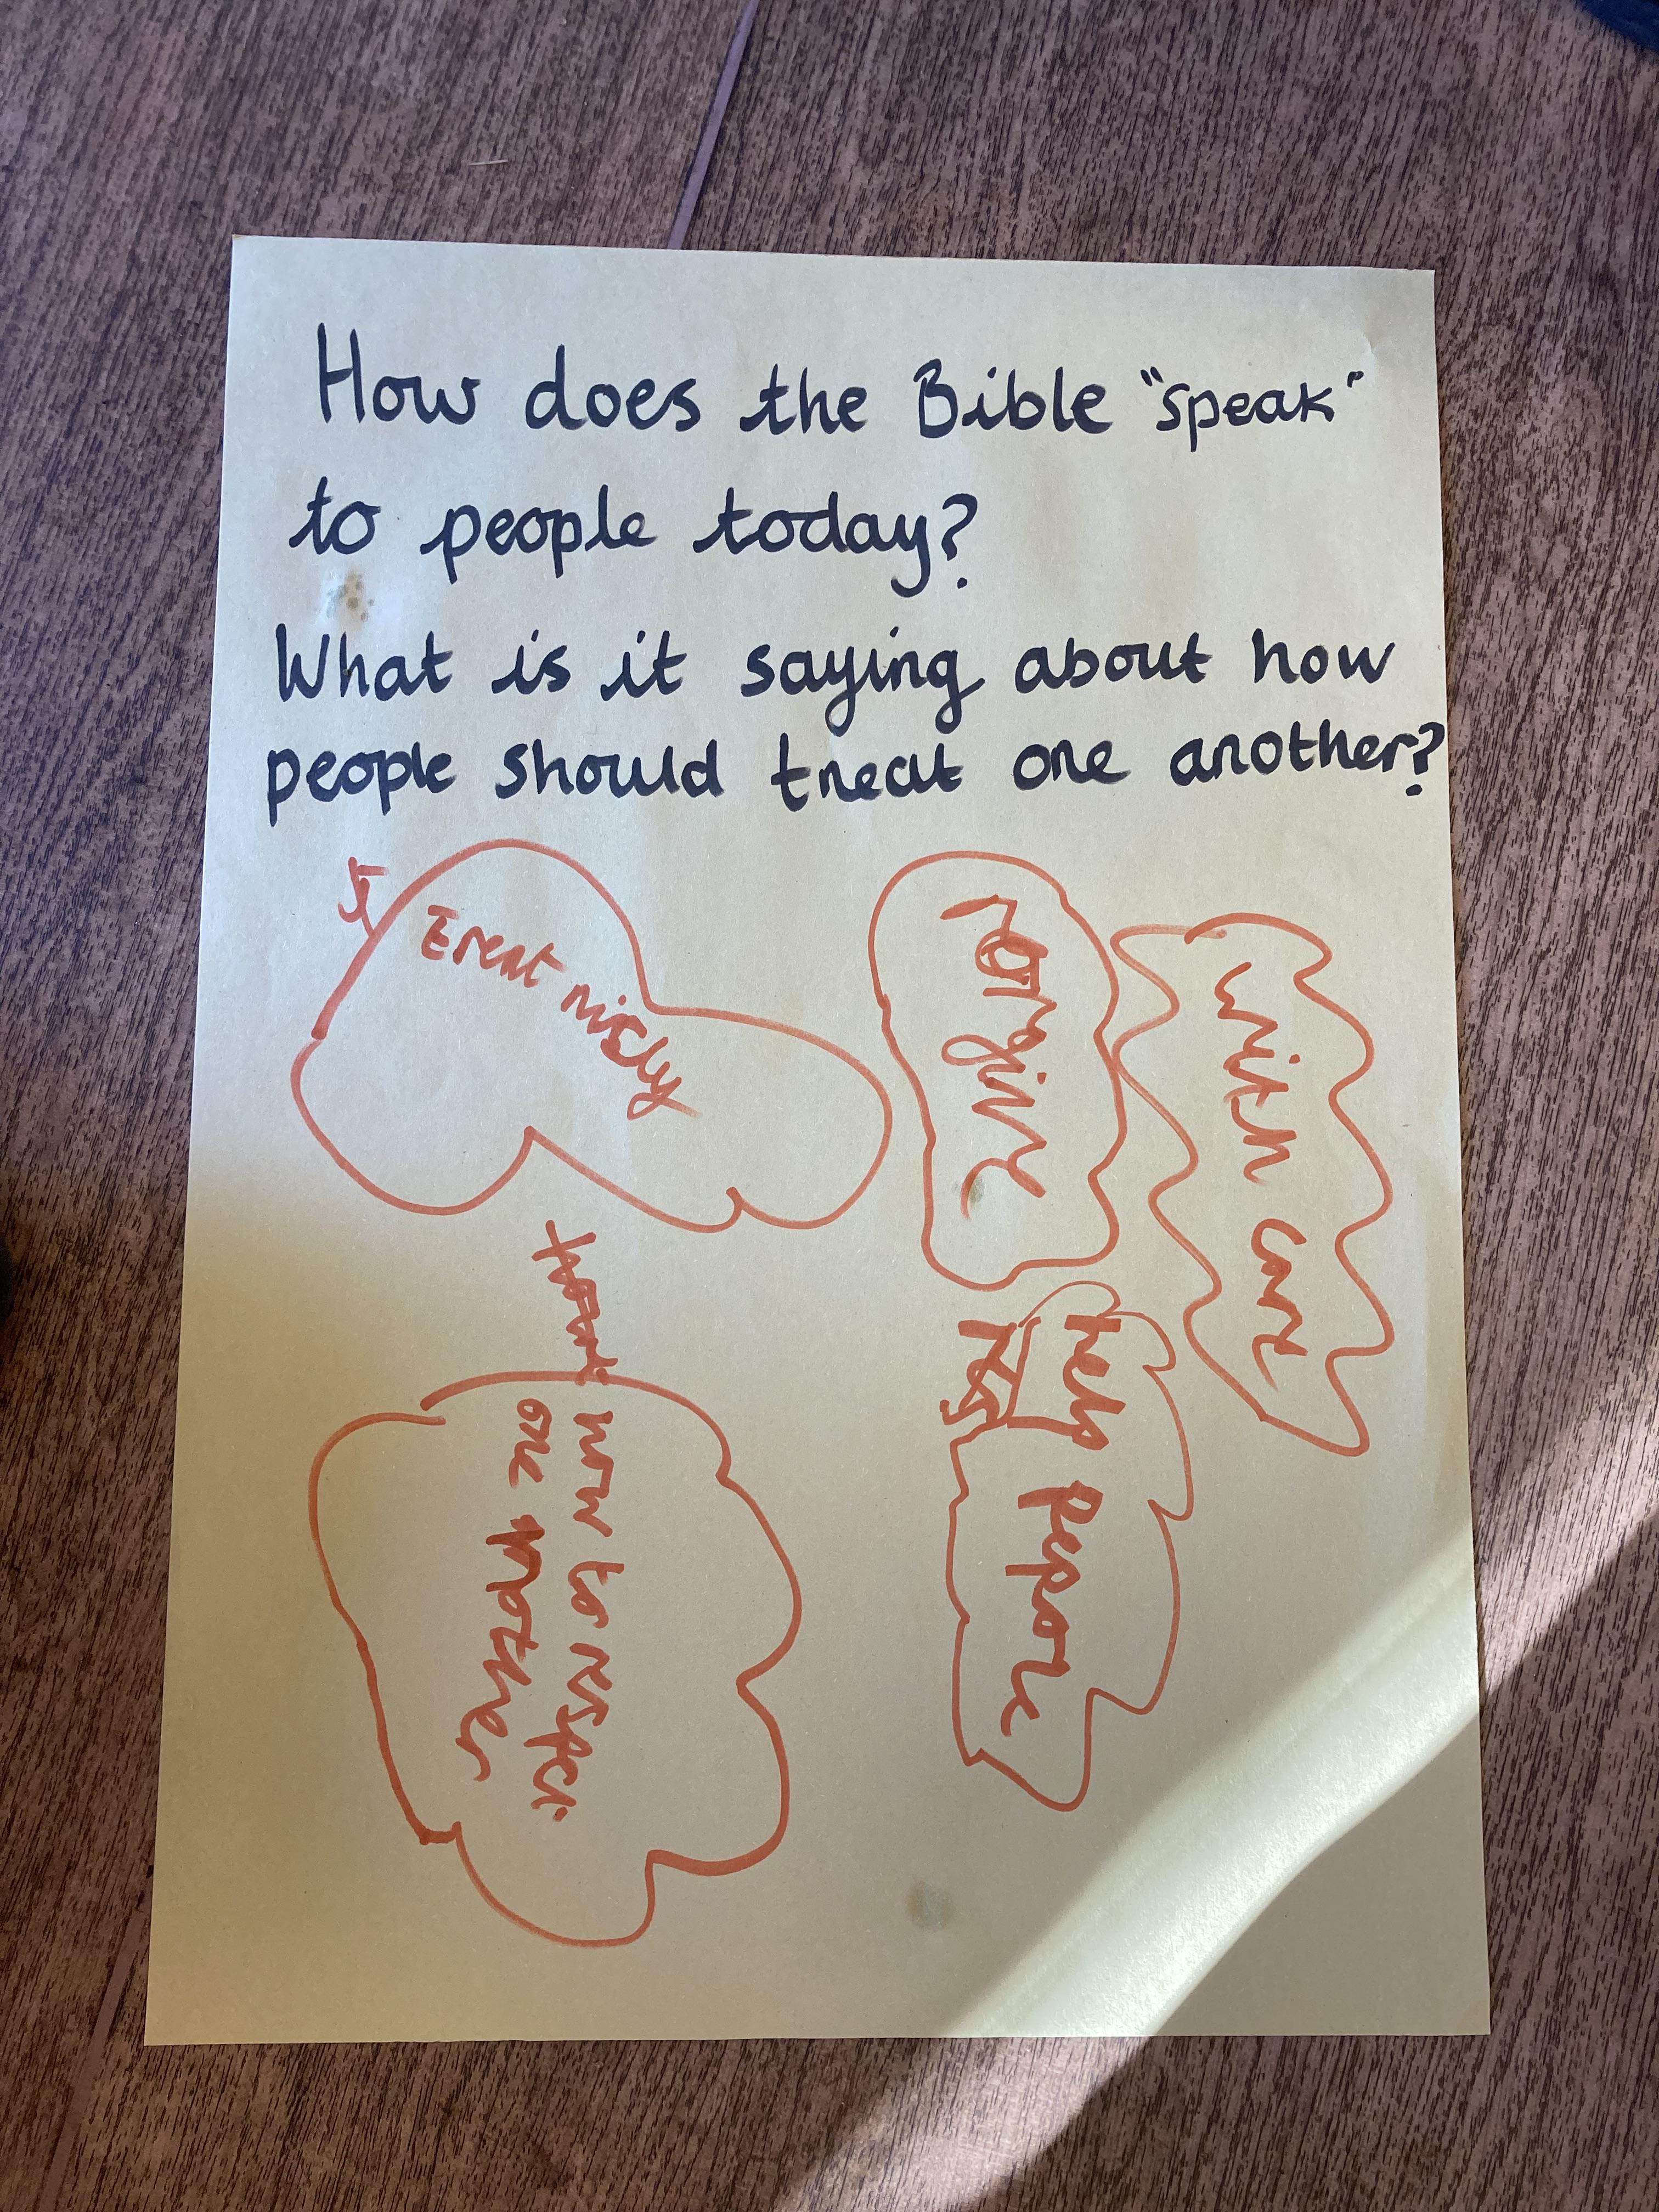 How does the Bible "speak"
to people today?
What is it saying about how
people should treat one another?
treat nicly
forgive
with care
help pepole
how to respect
one another